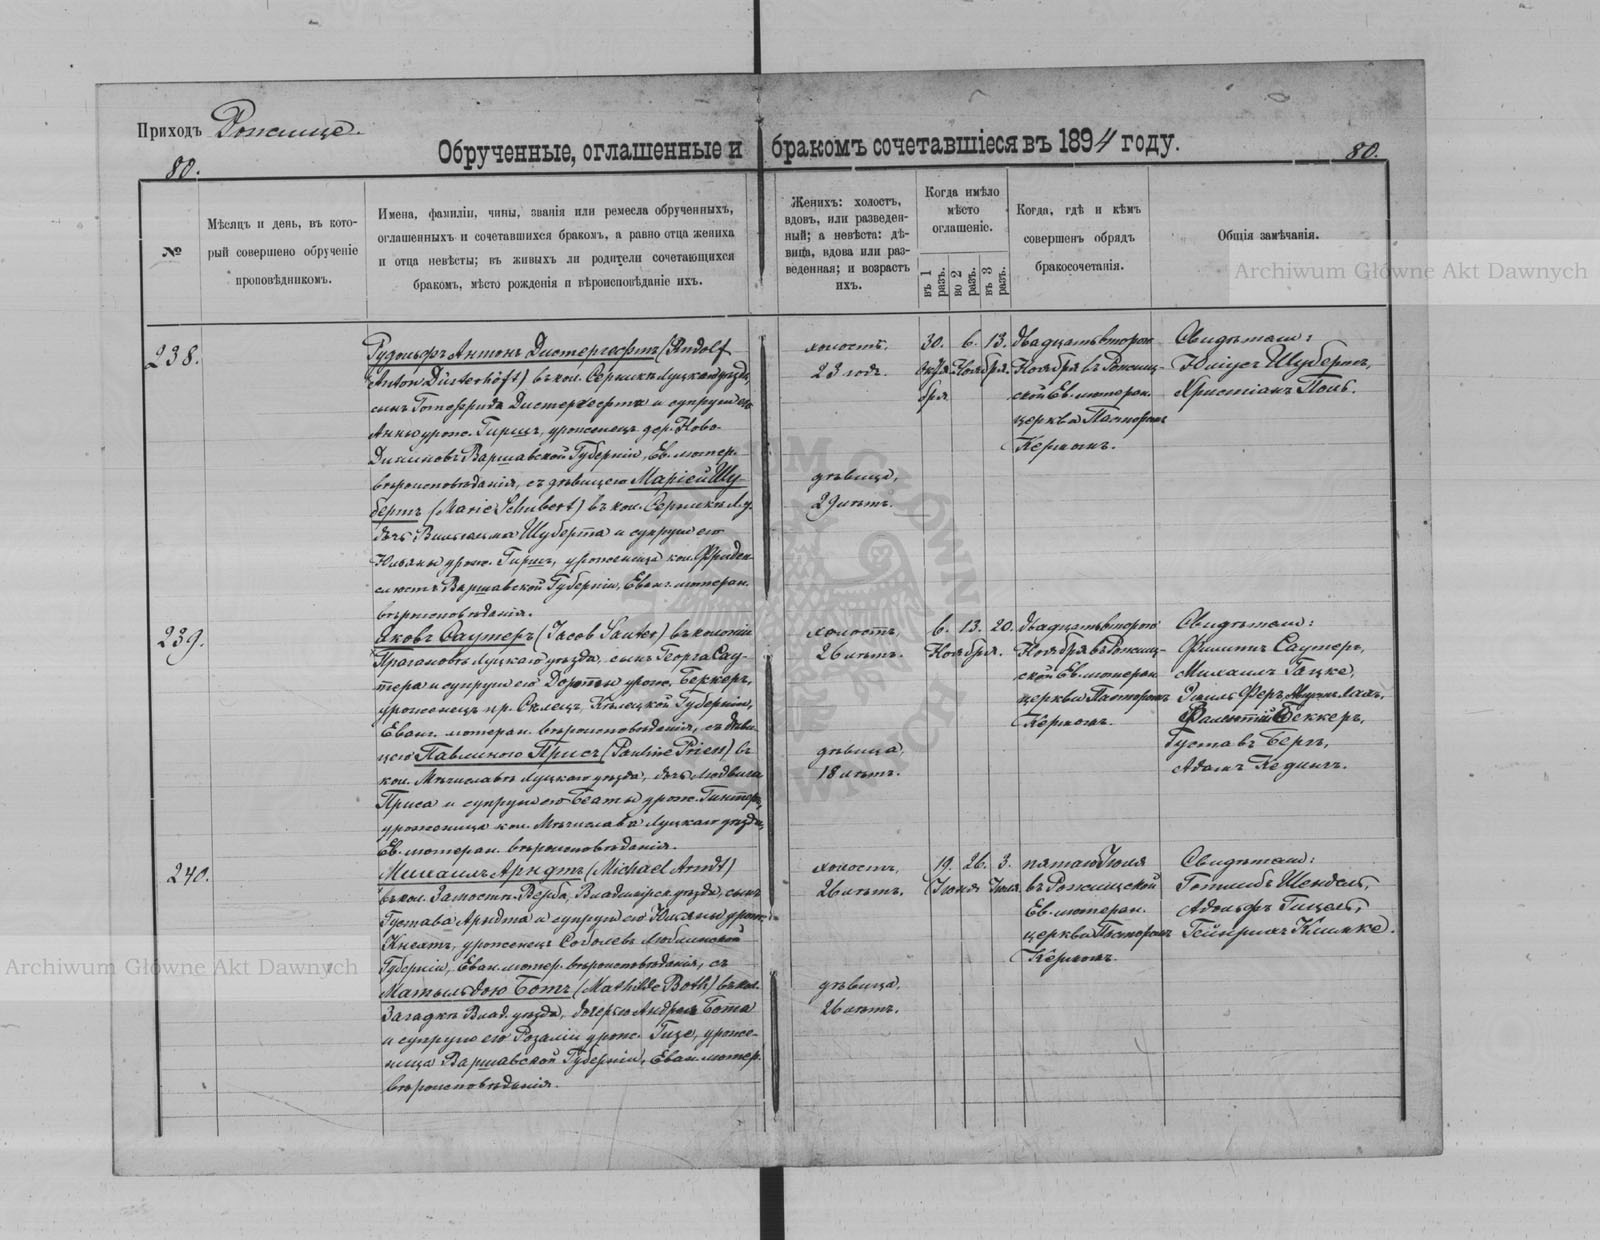 Приходъ Рожище.
80.
Обрученные, оглашенные и бракомъ сочетавшіеся въ 1894 году.
80.
№
Мѣсяцъ и день, въ кото-
рый совершено обрученіе
проповѣдникомъ.
Имена, фамиліи, чины, званія или ремесла обрученныхъ,
оглашенныхъ и сочетавшихся бракомъ, а равно отца жениха
и отца невѣсты; въ живыхъ ли родители сочетающихся
бракомъ, мѣсто рожденія и вѣроисповѣданіе ихъ.
Женихъ: холостъ,
вдовъ, или разведен-
ный; а невѣста: дѣ-
вица, вдова или раз-
веденная; и возрастъ
ихъ.
Когда имѣло
мѣсто
оглашеніе.
въ 1 разъ.
во 2 разъ.
въ 3 разъ.
Когда, гдѣ и кѣмъ
совершенъ обрядъ
бракосочетанія.
Общія замѣчанія.
Archiwum Główne Akt Dawnych
238.
Рудольфъ Антонъ Дистергефтъ (Rudolf
Anton Düsterhöft) въ кол. Серникъ Луцкаго уѣзда,
сынъ Готфрида Дистергефта и супруги его
Анны урож. Гиршъ, уроженецъ дер. Ново-
Варшавской Губерніи, Ев. лютер.
вѣроисповѣданія, съ дѣвицею Маріей Шу-
бертъ (Marie Schubert) въ кол. Серникъ Л.у.
дочь Вильгельма Шуберта и супруги его
Юльяны урож. Гиршъ, уроженица кол. Фриден-
Варшавской Губерніи, Еван. лютеран.
вѣроисповѣданія.
холостъ.
23 год.
дѣвица,
29 лѣтъ.
30. 6. 13.
Октя Ноября.
бря
двадцать второго
Ноября въ Рожищ-
ской Ев. лютеран.
церкви Пасторомъ
Кермомъ.
Свидѣтели:
Юліусъ Шубертъ,
Христіанъ Поль.
239.
Яковъ Саутеръ (Jacob Sauter) въ колоніи
Луцкаго уѣзда, сынъ Георга Сау-
тера и супруги его Доротеи урож. Беккеръ,
уроженецъ пр. Кѣлецкой Губерніи,
Еванг. лютеран. вѣроисповѣданія, съ дѣви-
цею Павлиною Присъ (Pauline Prien) въ
кол. Мѣчиславъ Луцкаго уѣзда, дочь Людвига
Приса и супруги его Беаты урож. Гинтеръ,
уроженица кол. Мѣчиславъ Луцкаго уѣзда,
Ев. лютеран. вѣроисповѣданія.
холостъ,
26 лѣтъ.
дѣвица,
18 лѣтъ.
6. 13. 20.
Ноября.
двадцать второго
Ноября въ Рожищ-
ской Ев. лютеран.
церкви Пасторомъ
Кермомъ.
Свидѣтели:
Филиппъ Саутеръ,
Михаилъ Гацке,
Валентій Беккеръ,
Густавъ Бергъ,
Адамъ Кединъ.
240.
Михаилъ Арндтъ (Michael Arndt)
въ кол. Замостье Верба, Владимірск. уѣзда, сынъ
Густава Арндта и супруги его Юльяны урож.
Кнеатъ, уроженецъ Соболевъ Люблинской
Губерніи, Еван. лютер. вѣроисповѣданія, съ
Матильдою Ботъ (Mathilde Both) въ кол.
Загадкъ Влад. уѣзда, дочерью Андрея Бота
и супруги его Розаліи урож. Гизе, уроже-
ница Варшавской Губерніи, Еван. лютер.
вѣроисповѣданія.
холостъ,
26 лѣтъ.
дѣвица,
26 лѣтъ.
19. 26. 3.
Іюня Іюля
пятаго Іюля
въ Рожищской
Ев. лютеран.
церкви Пасторомъ
Кермомъ.
Свидѣтели:
Готлибъ Шендель,
Адольфъ Гицель,
Гейнрихъ Климке.
Archiwum Główne Akt Dawnych